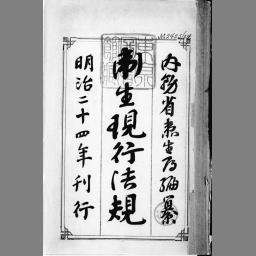 内務省衛生局編纂
衛生現行法規
明治二十四年刊行